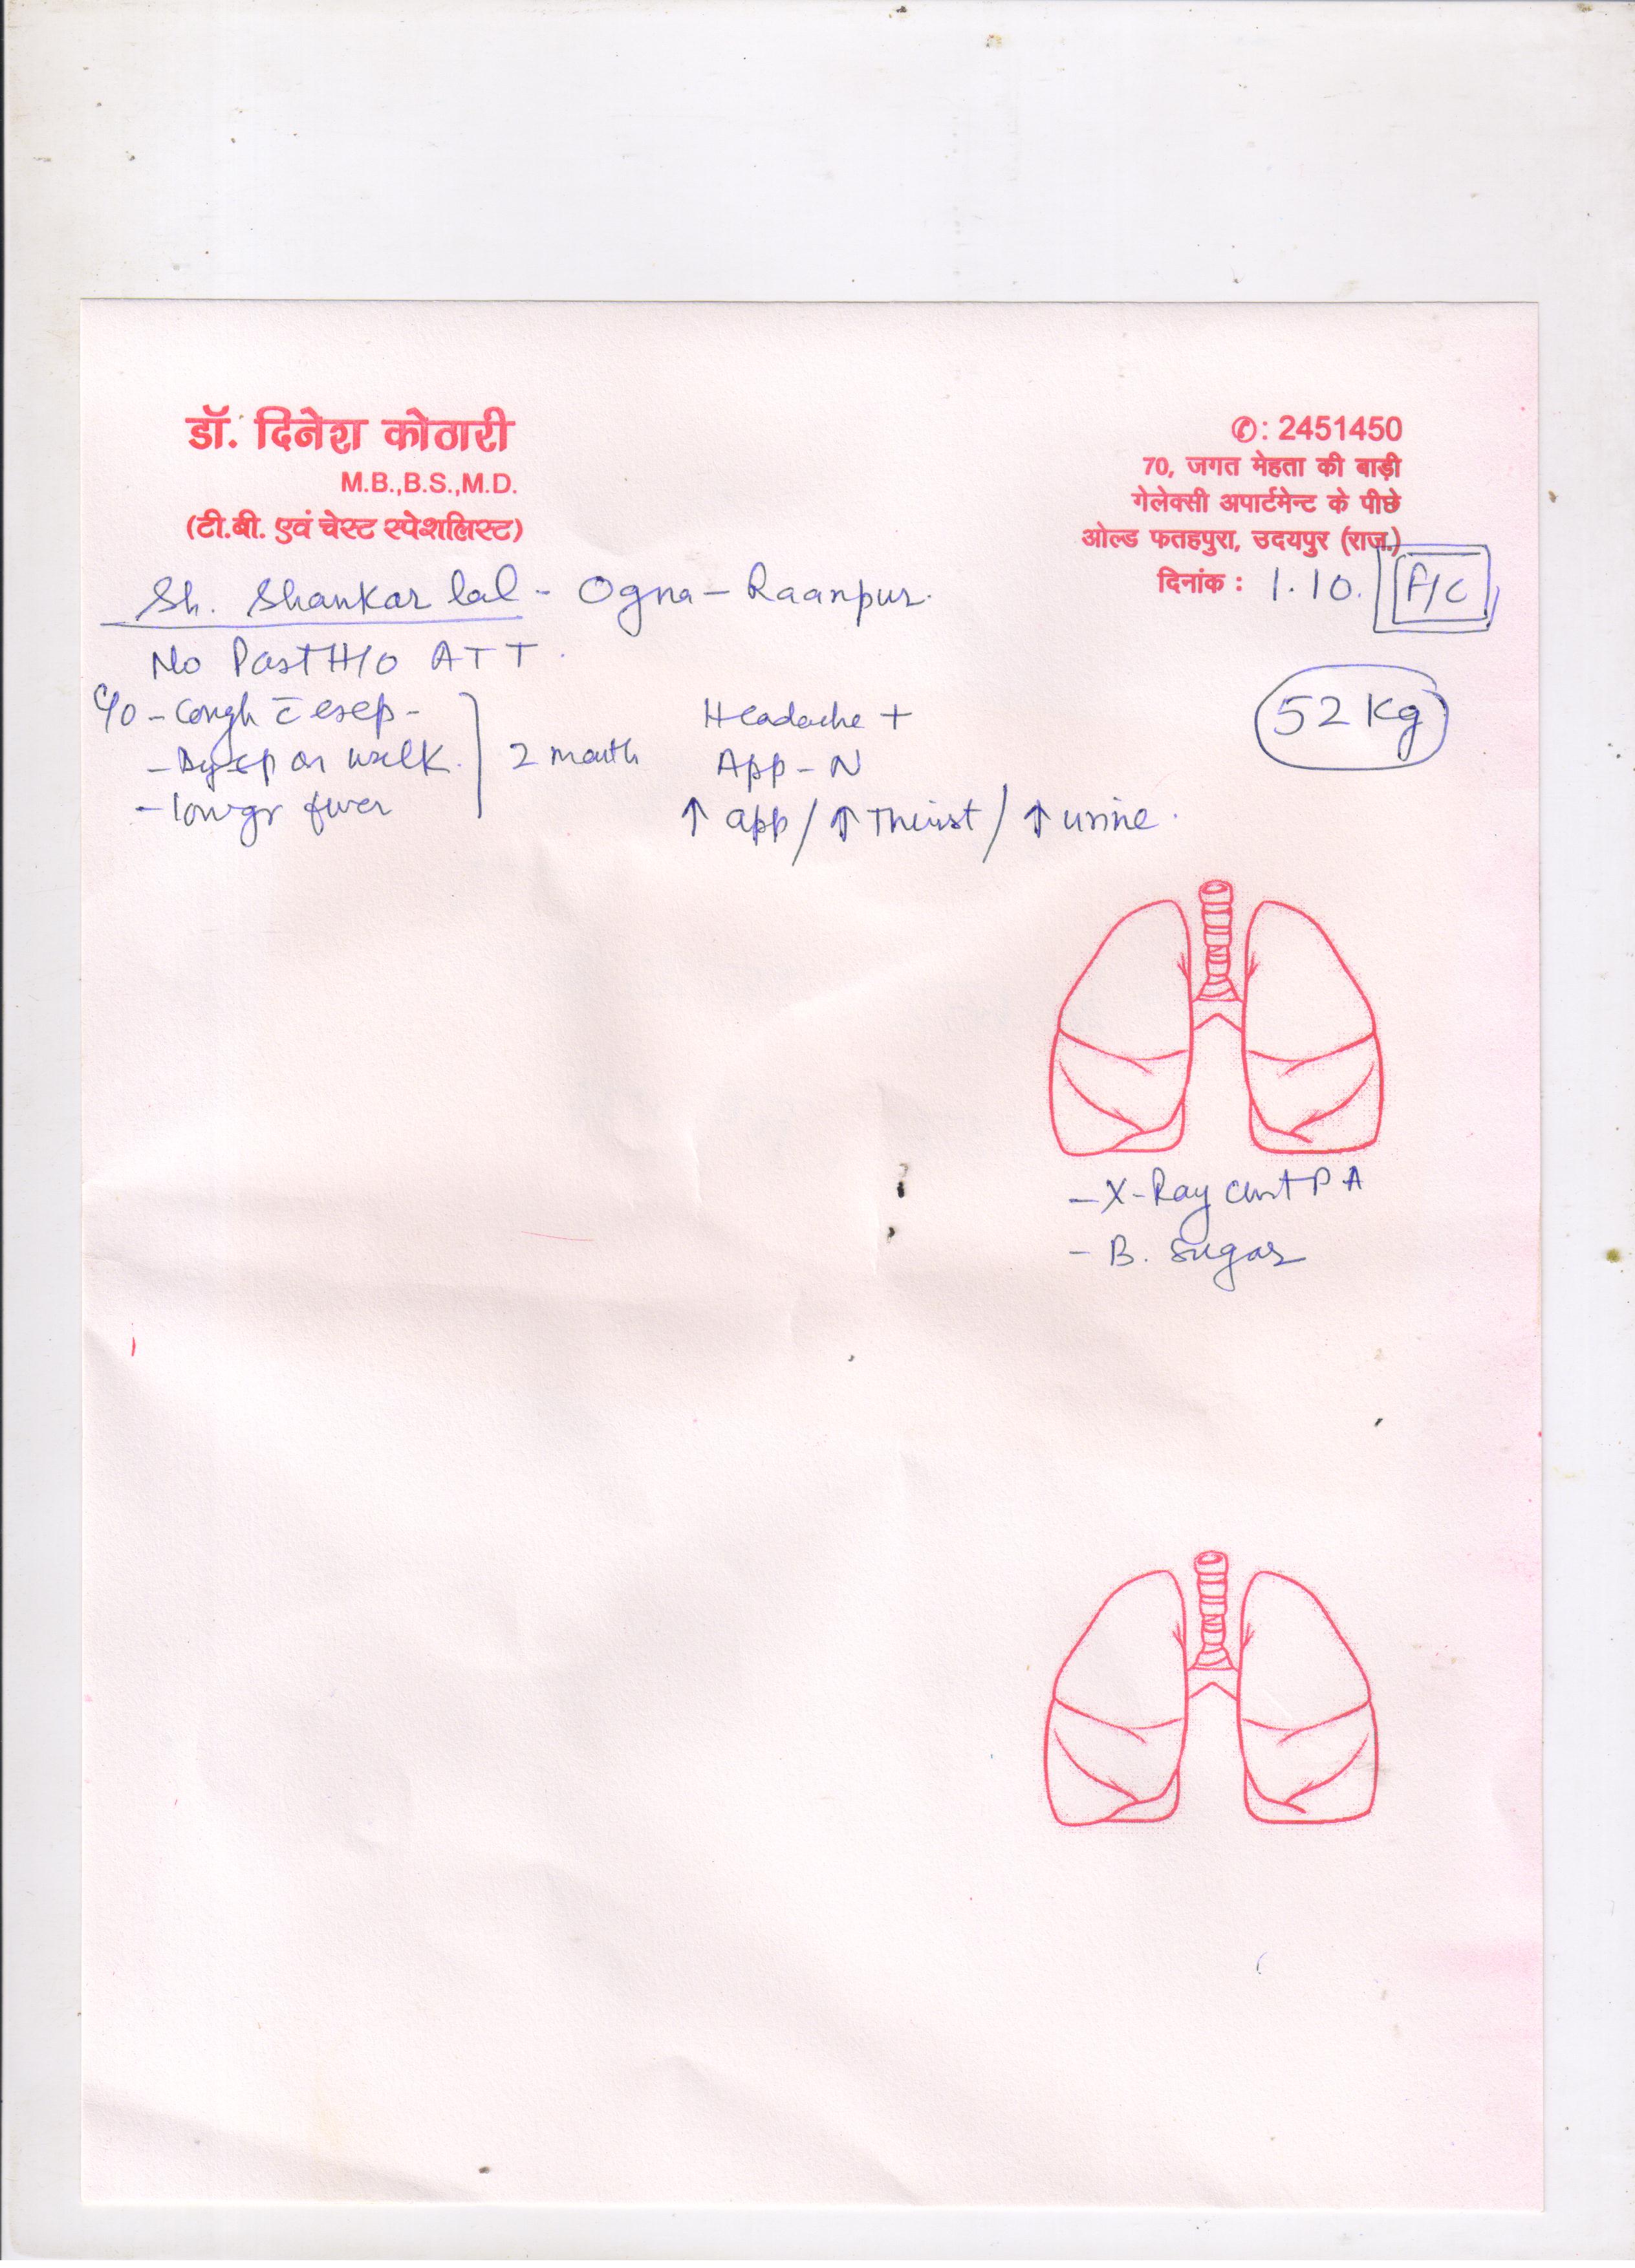 डॉ. दिनेश कोठारी
M.B.,B.S.,M.D.
(टी.बी. एवं चेस्ट स्पेशलिस्ट)
✆: 2451450
70, जगत मेहता की बाड़ी
गेलेक्सी अपार्टमेन्ट के पीछे
ओल्ड फतहपुरा, उदयपुर (राज.)
दिनांक : 1.10. F/C
Sh. Shankar lal - Ogna - Raanpur.
No Past H/O ATT.
52 Kg
C/O - Cough c̄ exep -
- on walk.
- lowgr fever
2 month
Headache +
App - N
↑ app / ↑ Thirst / ↑ urine.
- X-Ray Chest P A
- B. Sugar